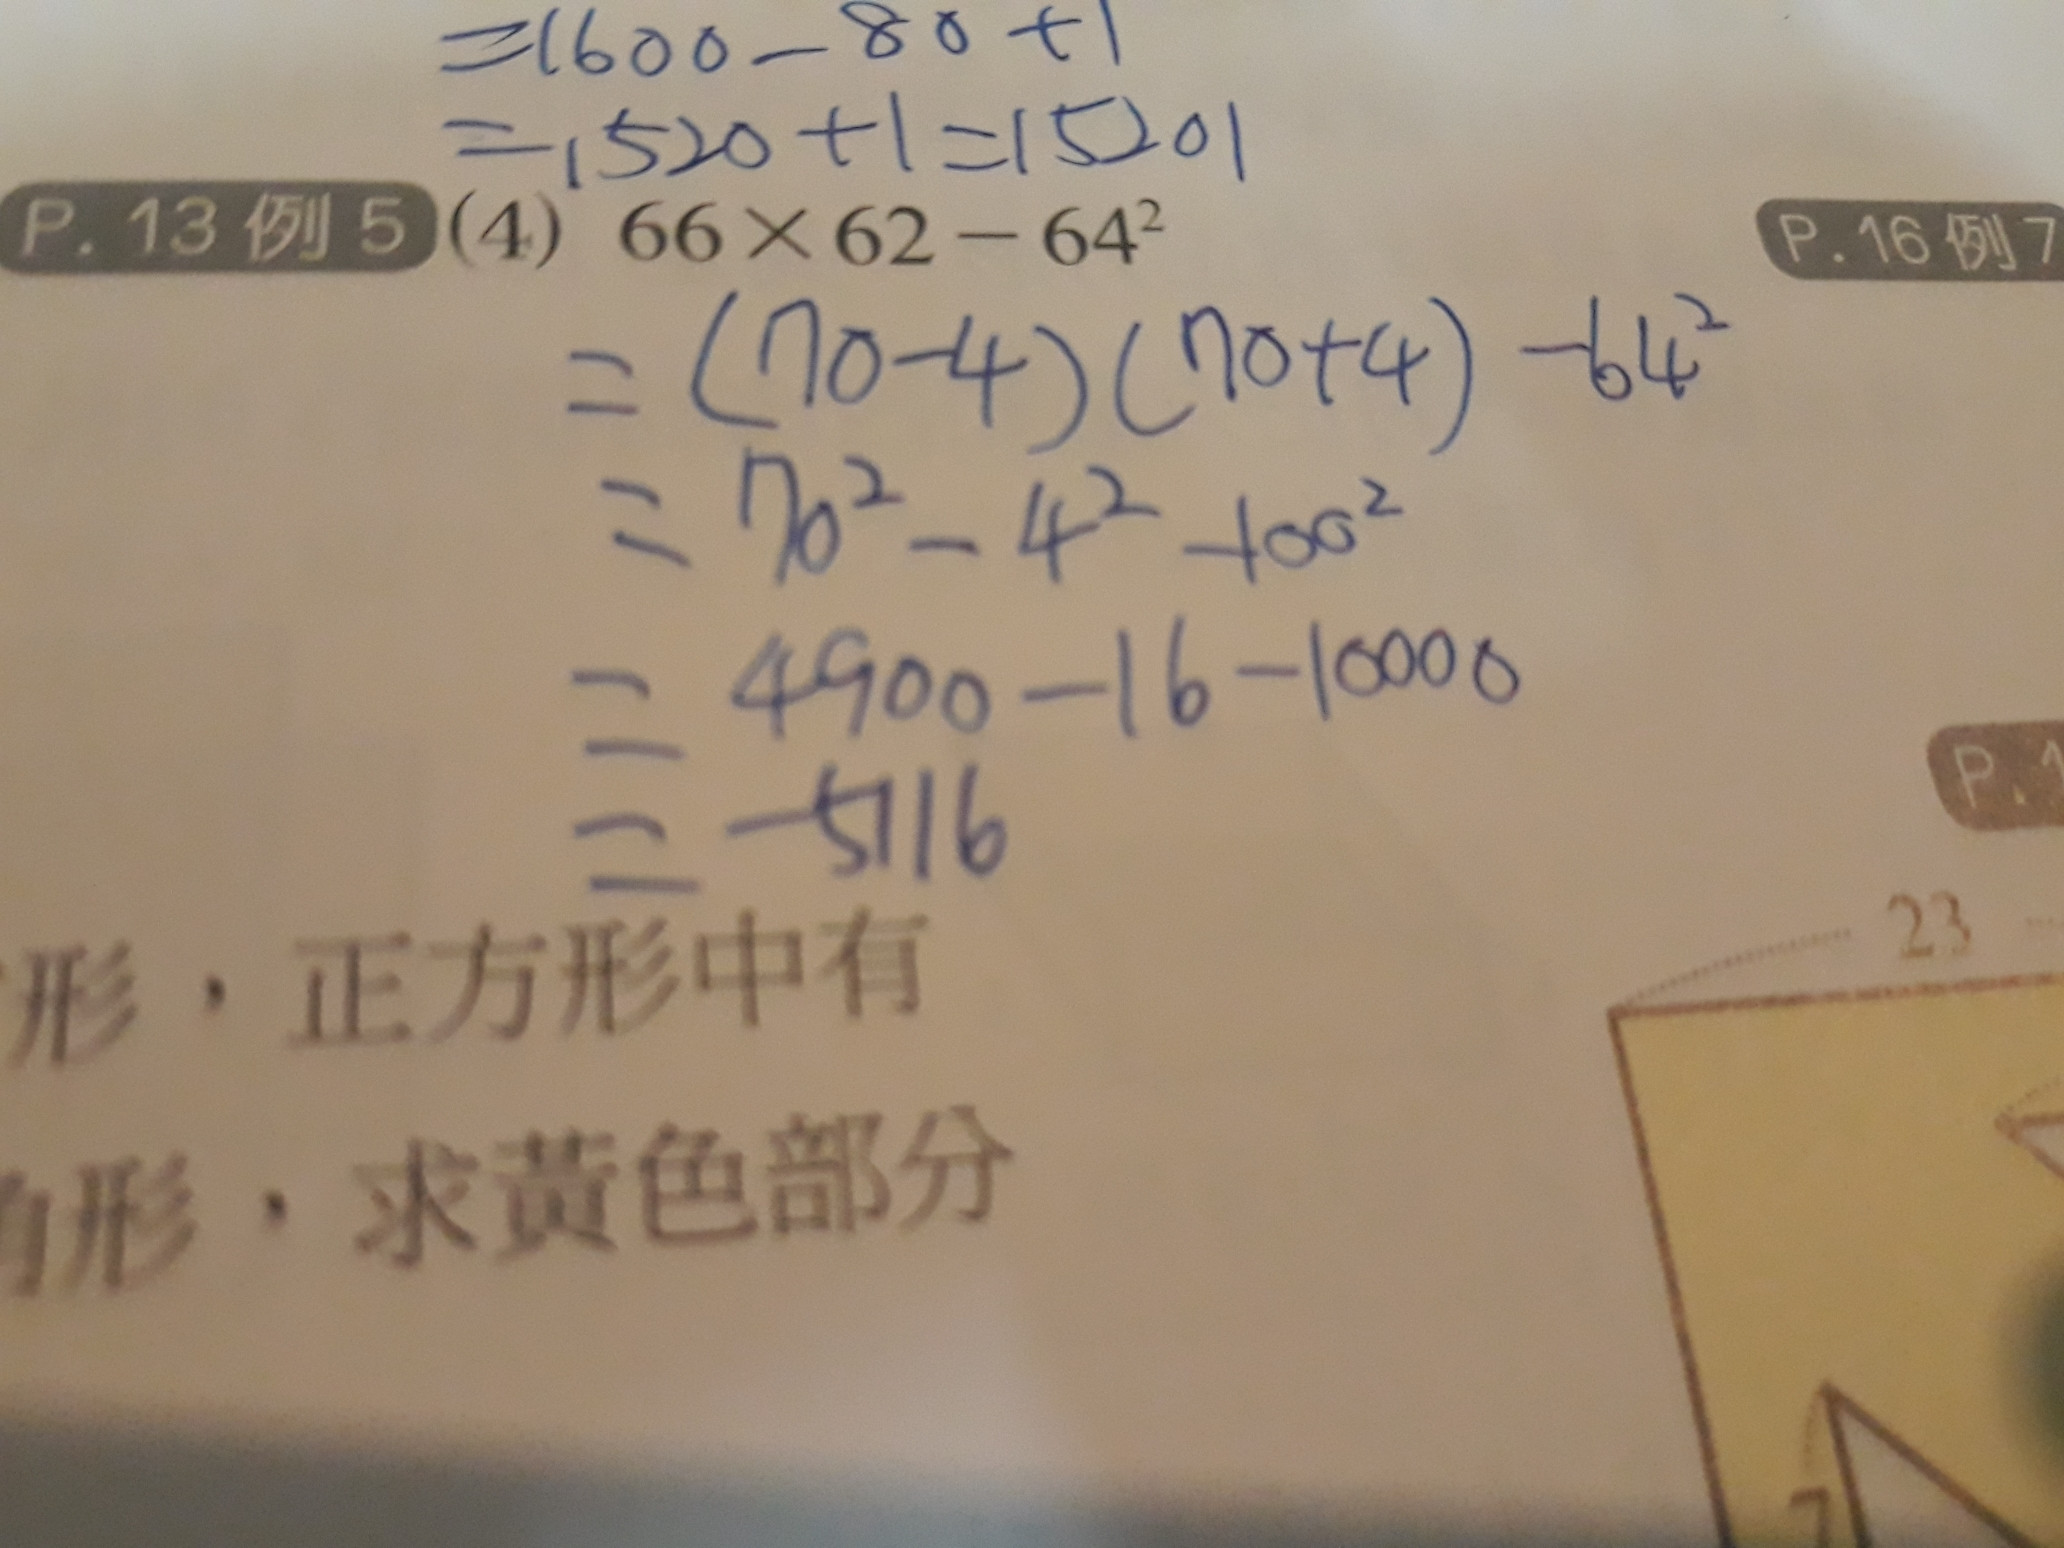 =1600-80+1
=1520+1=15201
P.13 例 5 (4) 66×62-64²
P.16 例 7
=(70-4)(70+4)-64²
=70²-4²-100²
=4900-16-10000
P.1
=-5116
23
形，正方形中有
角形，求黃色部分
7